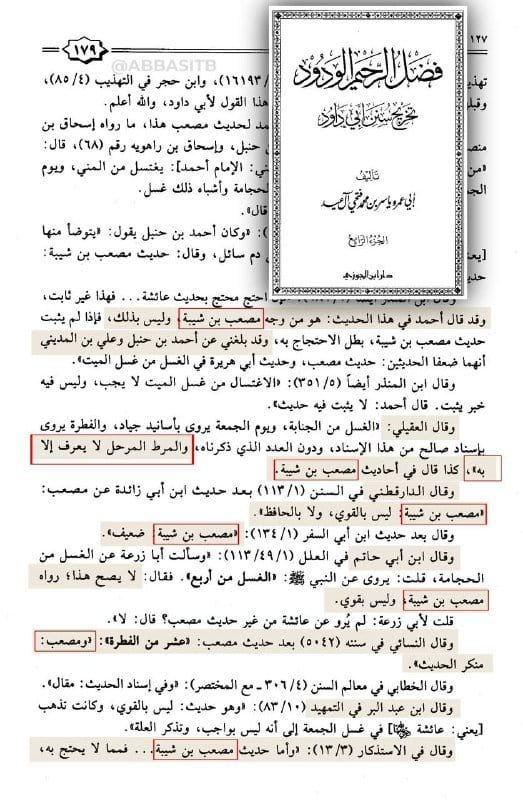 ١٧٩
١٢٧
@ABBASITB
فضل الرحيم الودود
تخريج سنن أبي داود
تأليف
أبي عمرو ياسر بن محمد فتحي آل عيد
الجزء الرابع
دار ابن الجوزي
١٦١٩٣)، وابن حجر في التهذيب (٨٥/٤)،
هذا القول لأبي داود، والله أعلم.
لحديث مصعب هذا، ما رواه إسحاق بن
حنبل، وإسحاق بن راهويه رقم (٦٨)، قال:
[الإمام أحمد]: يغتسل من المني، ويوم
الحجامة وأشباه ذلك غسل.
قال».
«وكان أحمد بن حنبل يقول: «يتوضأ منها
دم سائل، وقال: حديث مصعب بن شيبة:
احتج محتج بحديث عائشة... فهذا غير ثابت،
وقد قال أحمد في هذا الحديث: هو من وجه مصعب بن شيبة، وليس بذلك، فإذا لم يثبت
حديث مصعب بن شيبة، بطل الاحتجاج به، وقد بلغني عن أحمد بن حنبل وعلي بن المديني
أنهما ضعفا الحديثين: حديث مصعب، وحديث أبي هريرة في الغسل من غسل الميت».
وقال ابن المنذر أيضاً (٣٥١/٥): «الاغتسال من غسل الميت لا يجب، وليس فيه
خبر يثبت. قال أحمد: لا يثبت فيه حديث».
وقال العقيلي: «الغسل من الجنابة، ويوم الجمعة يروى بأسانيد جياد، والفطرة يروى
بإسناد صالح من هذا الإسناد، ودون العدد الذي ذكرناه، والمرط المرحل لا يعرف إلا
به»، كذا قال في أحاديث مصعب بن شيبة.
وقال الدارقطني في السنن (١١٣/١) بعد حديث ابن أبي زائدة عن مصعب:
«مصعب بن شيبة: ليس بالقوي، ولا بالحافظ».
وقال بعد حديث ابن أبي السفر (١٣٤/١): «مصعب بن شيبة: ضعيف».
وقال ابن أبي حاتم في العلل (١١٣/٤٩/١): «وسألت أبا زرعة عن الغسل من
الحجامة، قلت: يروى عن النبي ﷺ: «الغسل من أربع». فقال: لا يصح هذا؛ رواه
مصعب بن شيبة، وليس بقوي.
قلت لأبي زرعة: لم يُرو عن عائشة من غير حديث مصعب؟ قال: لا».
وقال النسائي في سننه (٥٠٤٢) بعد حديث مصعب: «عشر من الفطرة»: «ومصعب:
منكر الحديث».
وقال الخطابي في معالم السنن (٣٠٦/٤ ـ مع المختصر): «وفي إسناد الحديث: مقال».
وقال ابن عبد البر في التمهيد (٨٣/١٠): «وهو حديث: ليس بالقوي، وكانت تذهب
[يعني: عائشة ﵂] في غسل الجمعة إلى أنه ليس بواجب، وتذكر العلة».
وقال في الاستذكار (١٣/٣): «وأما حديث مصعب بن شيبة... فمما لا يحتج به،